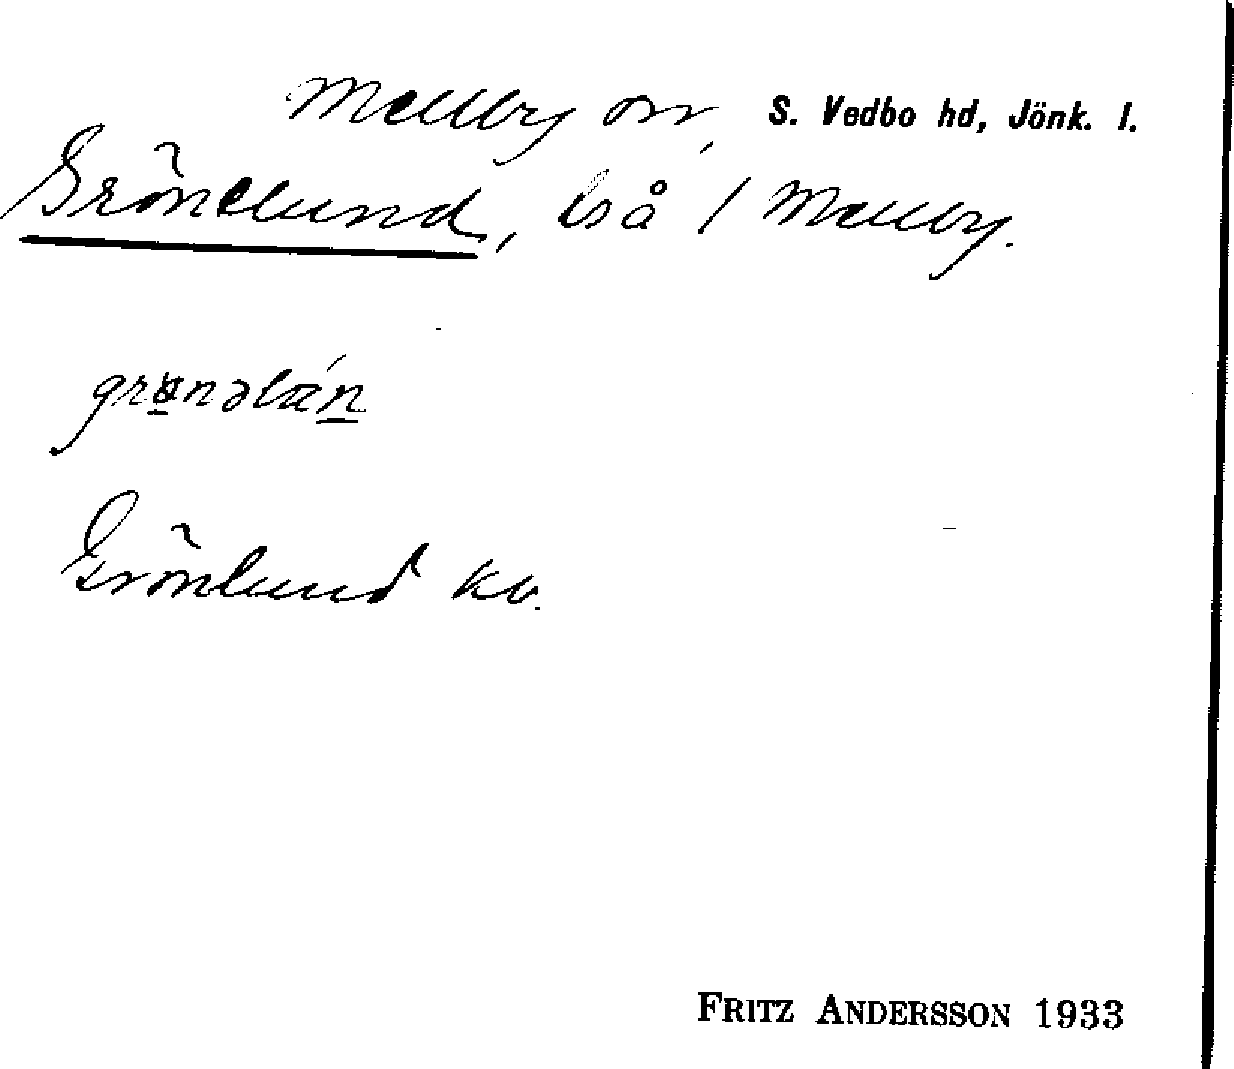 Mellby sn, S. Vedbo hd, Jönk. l.
Grönelund, lså / Mellby.
Grönlund kv.
FRITZ ANDERSSON 1933